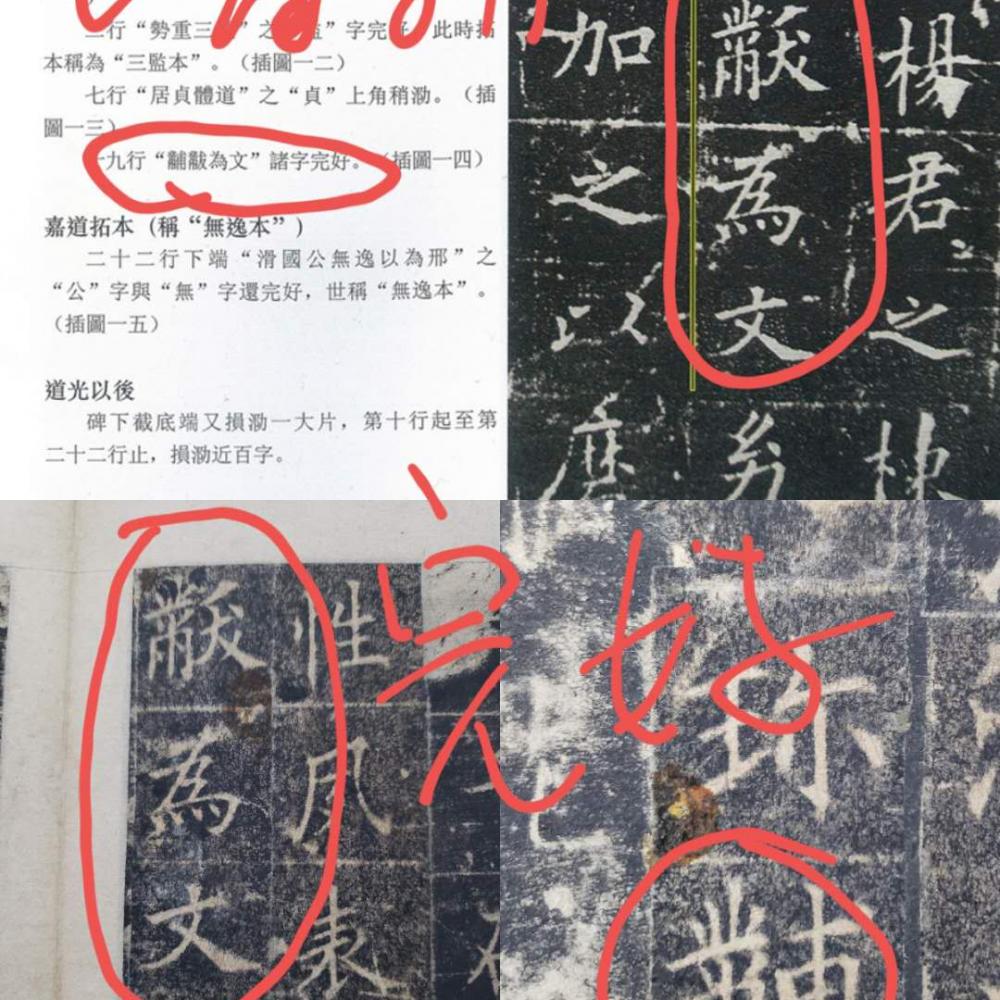 二行“勢重三 ”之“監”字完好，此時拓
本稱為“三監本”。（插圖一二）
七行“居貞體道”之“貞”上角稍泐。（插
圖一三）
十九行“黼黻為文”諸字完好。（插圖一四）
嘉道拓本（稱“無逸本”）
二十二行下端“滑國公無逸以為邢”之
“公”字與“無”字還完好，世稱“無逸本”。
（插圖一五）
道光以後
碑下截底端又損泐一大片，第十行起至第
二十二行止，損泐近百字。
楊君之棟
黻為文
加之以
性風
黻為文
完好
黼